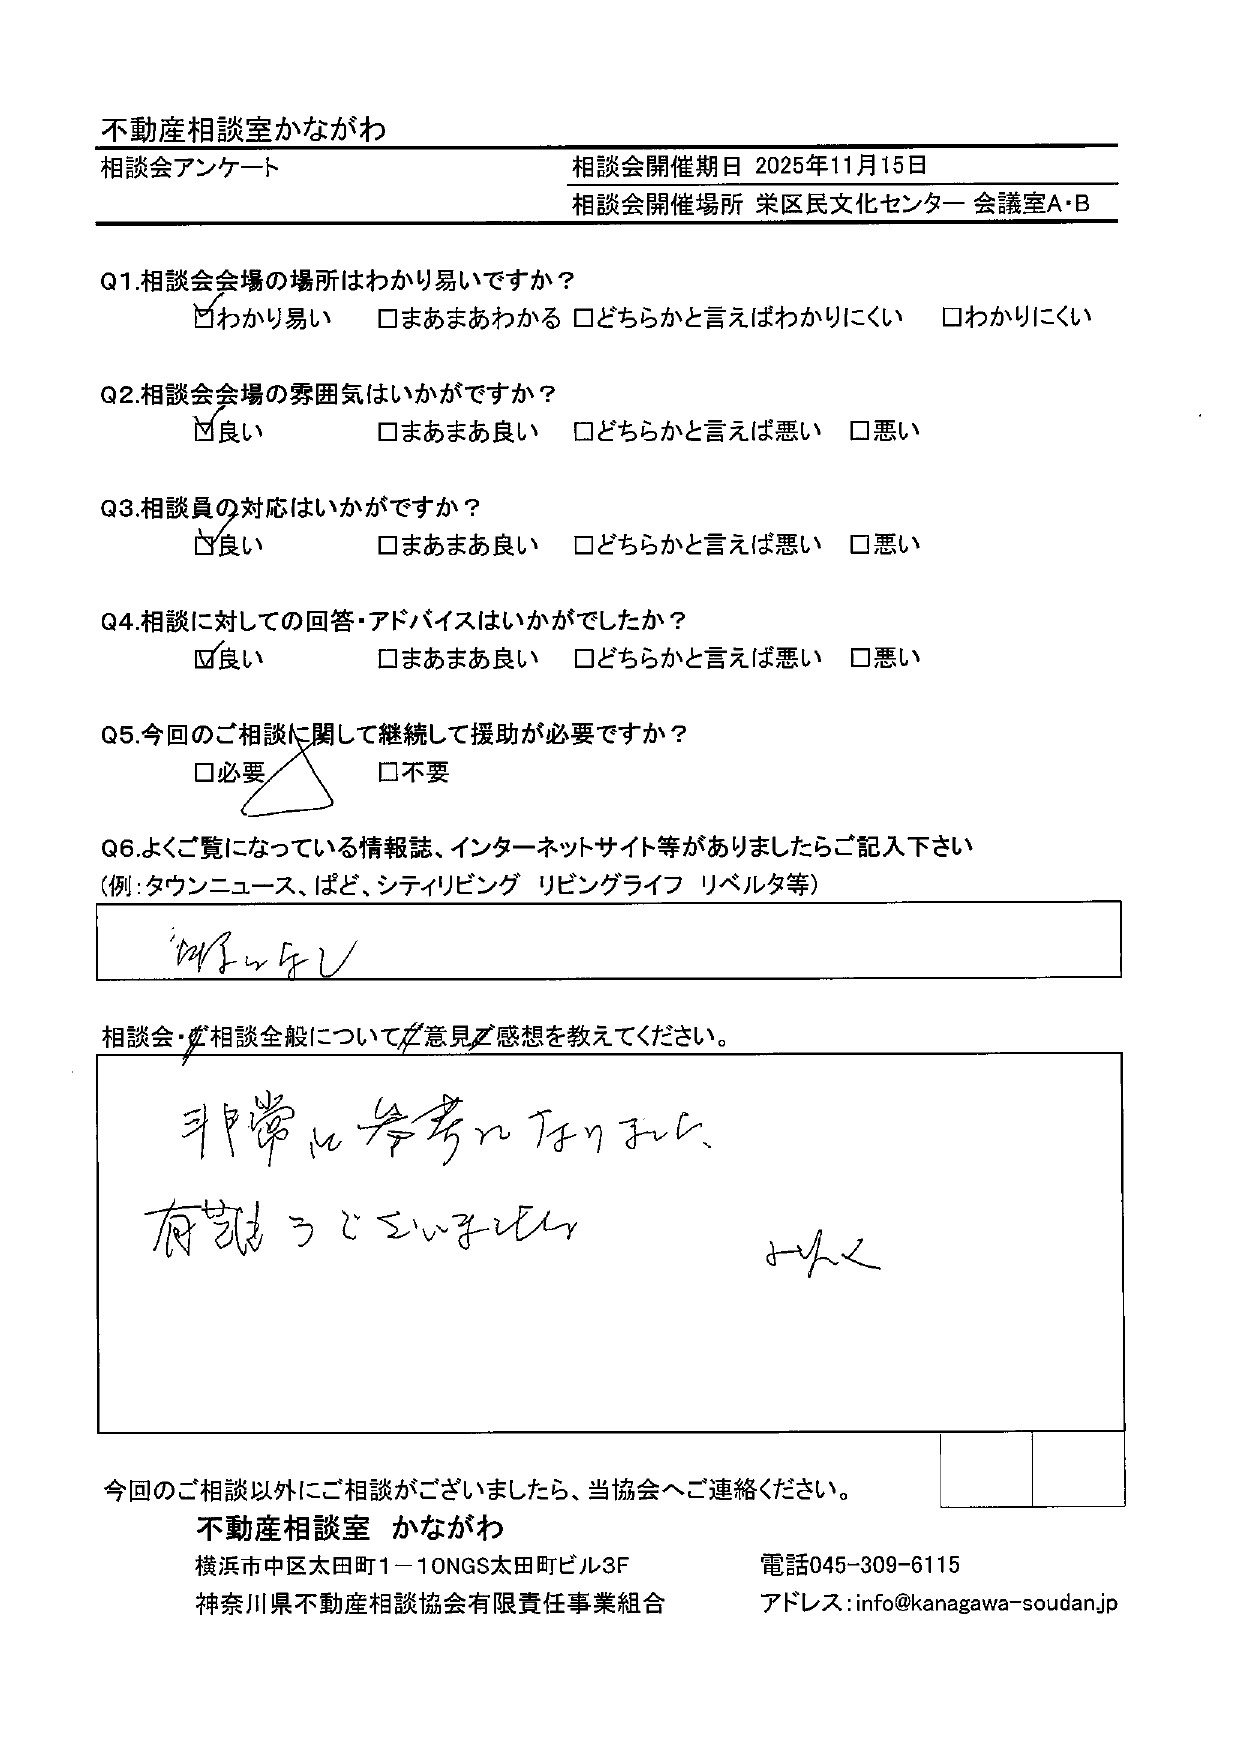 不動産相談室かながわ
相談会アンケート
相談会開催期日 2025年11月15日
相談会開催場所 栄区民文化センター 会議室A・B
Q1.相談会会場の場所はわかり易いですか？
☑わかり易い □まあまあわかる □どちらかと言えばわかりにくい □わかりにくい
Q2.相談会会場の雰囲気はいかがですか？
☑良い □まあまあ良い □どちらかと言えば悪い □悪い
Q3.相談員の対応はいかがですか？
☑良い □まあまあ良い □どちらかと言えば悪い □悪い
Q4.相談に対しての回答・アドバイスはいかがでしたか？
☑良い □まあまあ良い □どちらかと言えば悪い □悪い
Q5.今回のご相談に関して継続して援助が必要ですか？
□必要 □不要
Q6.よくご覧になっている情報誌、インターネットサイト等がありましたらご記入下さい
（例：タウンニュース、ぱど、シティリビング リビングライフ リベルタ等）
なし
相談会・ご相談全般についてご意見ご感想を教えてください。
非常に参考になりました、
有難うございました
今回のご相談以外にご相談がございましたら、当協会へご連絡ください。
不動産相談室 かながわ
横浜市中区太田町1－10NGS太田町ビル3F
電話045-309-6115
神奈川県不動産相談協会有限責任事業組合
アドレス：info@kanagawa-soudan.jp